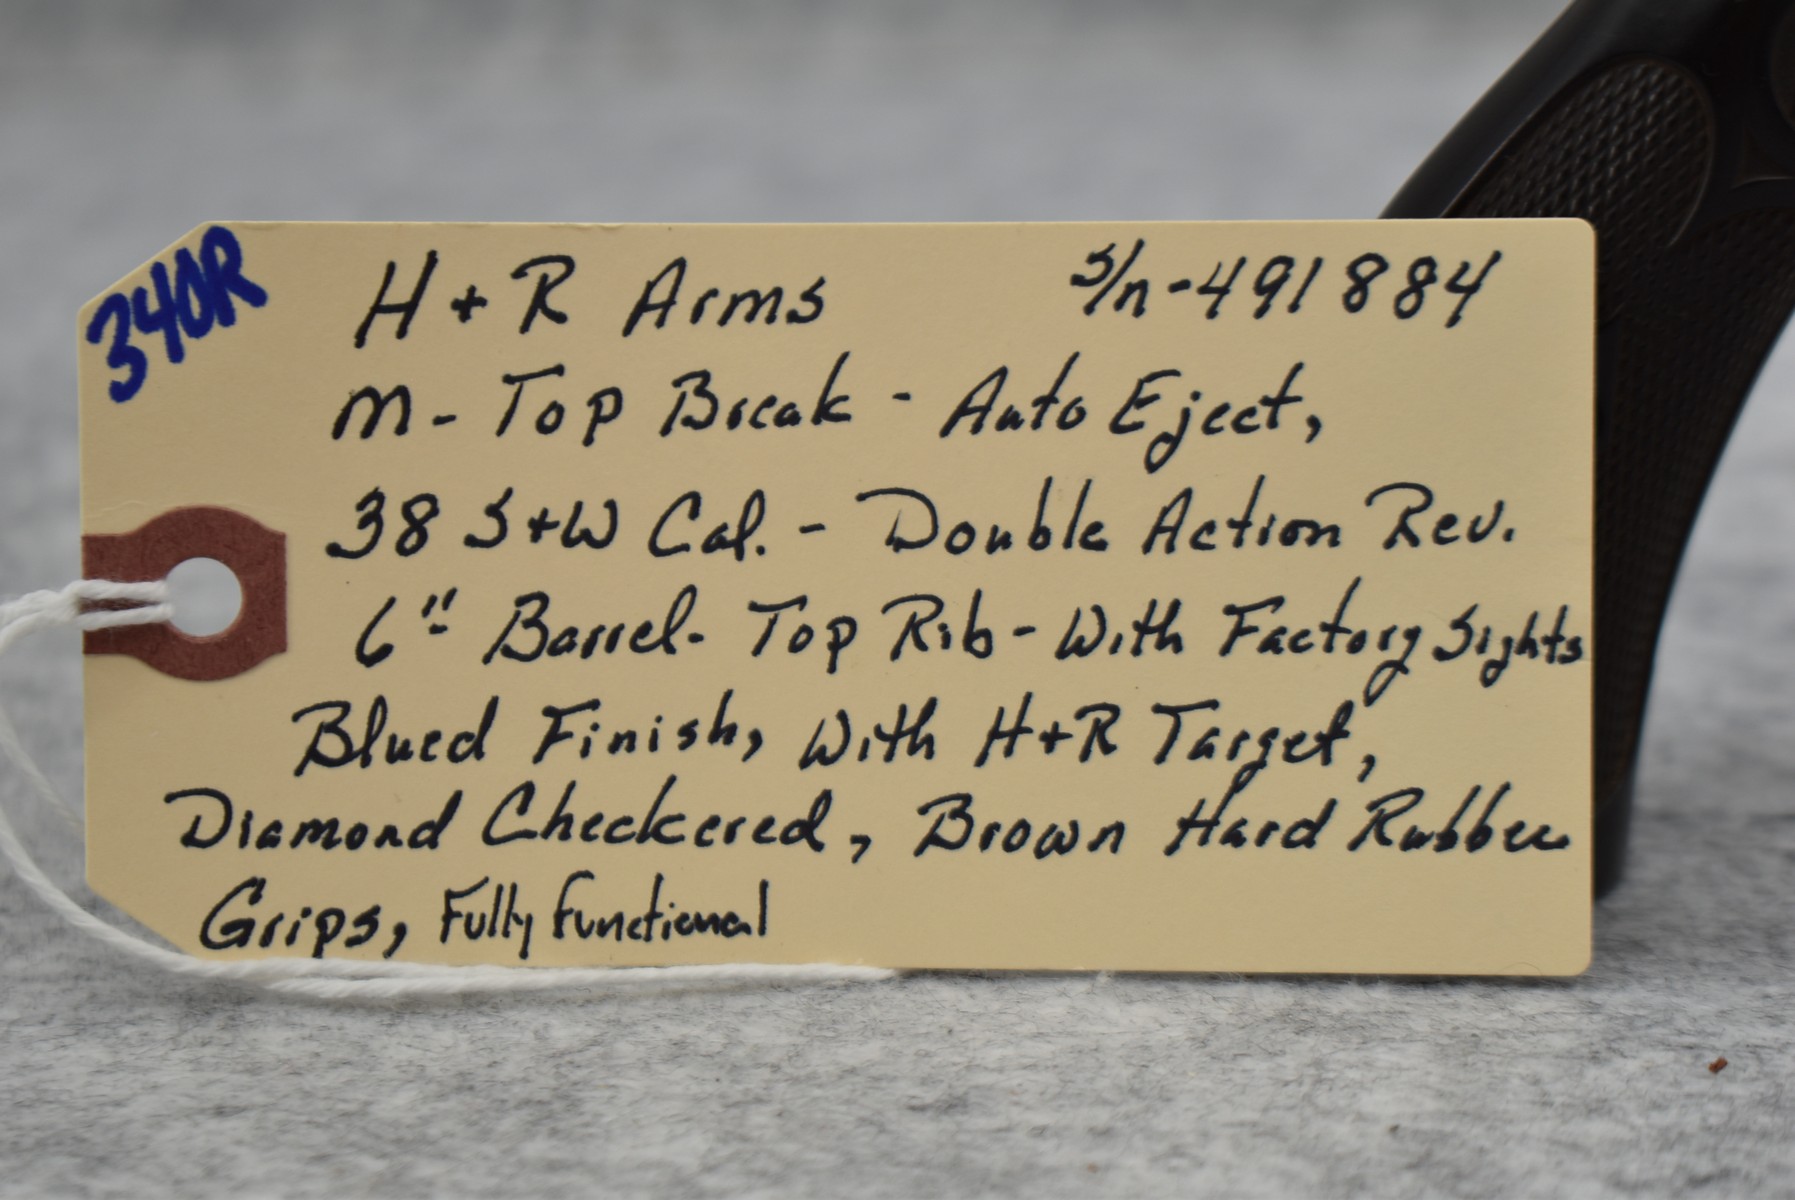 340R
H + R Arms s/n-491884
M- Top Break - Auto Eject,
38 S+W Cal. - Double Action Rev.
6" Barrel- Top Rib - With Factory Sights
Blued Finish, With H+R Target,
Diamond Checkered, Brown Hard Rubber
Grips, Fully Functional